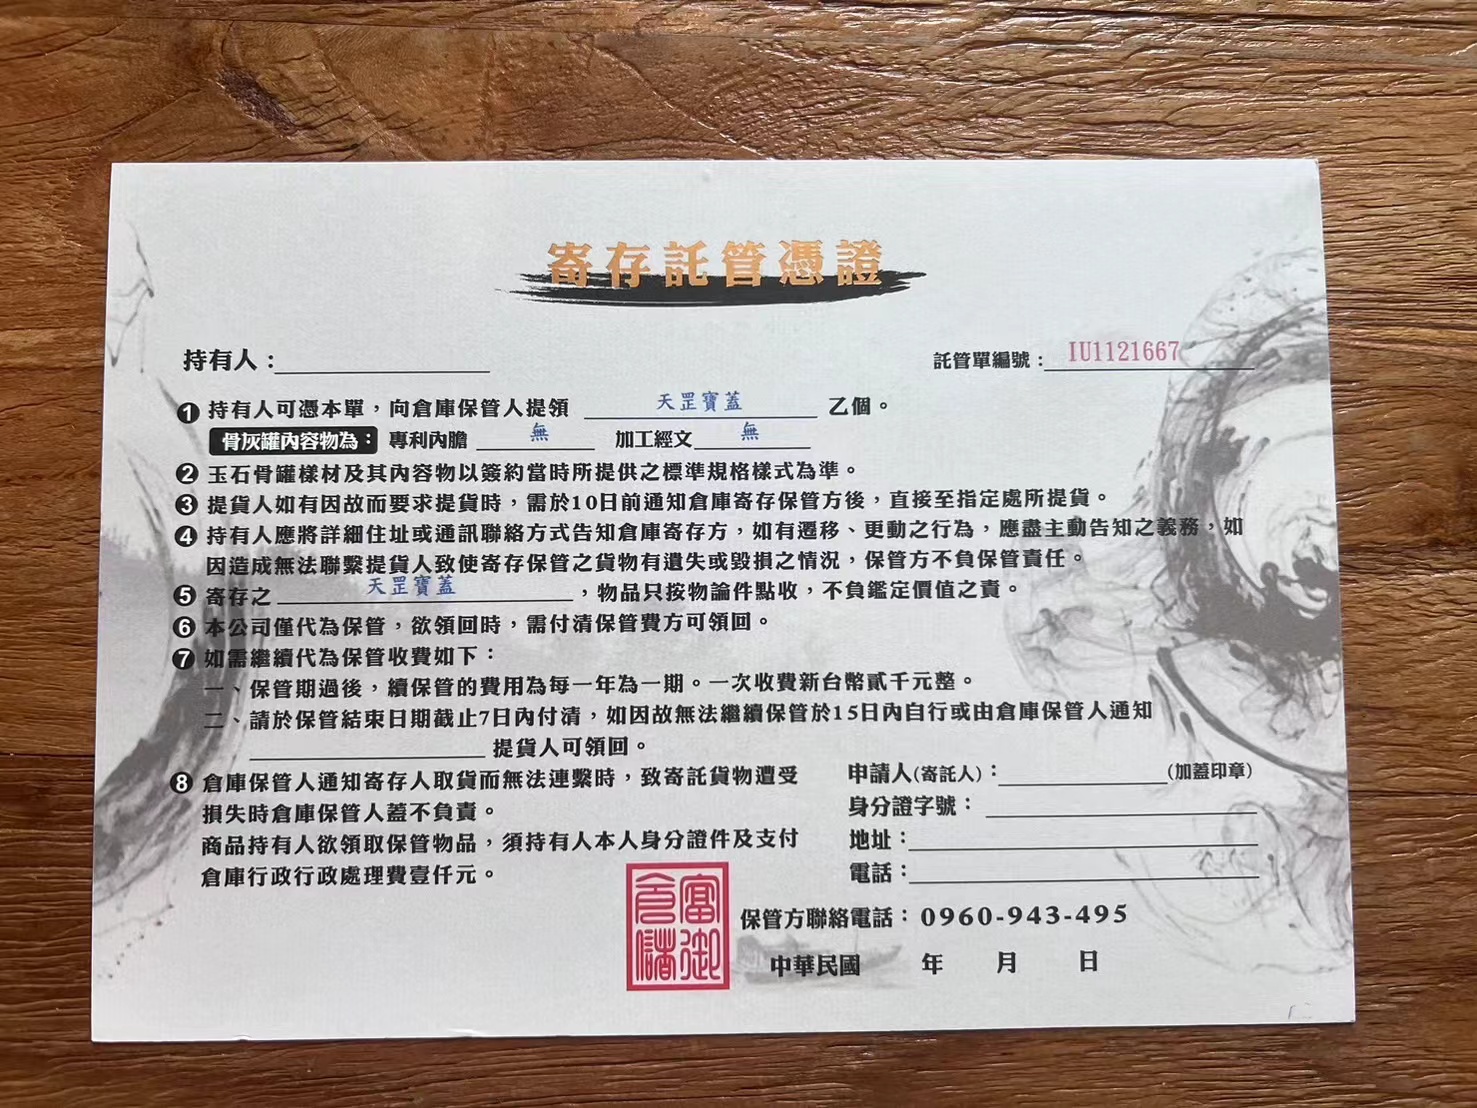 寄存託管憑證
持有人：
託管單編號：IU1121667
❶ 持有人可憑本單，向倉庫保管人提領 天罡寶蓋 乙個。
骨灰罐內容物為： 專利內膽 無 加工經文 無
❷ 玉石骨罐樣材及其內容物以簽約當時所提供之標準規格樣式為準。
❸ 提貨人如有因故而要求提貨時，需於10日前通知倉庫寄存保管方後，直接至指定處所提貨。
❹ 持有人應將詳細住址或通訊聯絡方式告知倉庫寄存方，如有遷移、更動之行為，應盡主動告知之義務，如
因造成無法聯繫提貨人致使寄存保管之貨物有遺失或毀損之情況，保管方不負保管責任。
❺ 寄存之 天罡寶蓋 ，物品只按物論件點收，不負鑑定價值之責。
❻ 本公司僅代為保管，欲領回時，需付清保管費方可領回。
❼ 如需繼續代為保管收費如下：
一、保管期過後，續保管的費用為每一年為一期。一次收費新台幣貳千元整。
二、請於保管結束日期截止7日內付清，如因故無法繼續保管於15日內自行或由倉庫保管人通知
提貨人可領回。
❽ 倉庫保管人通知寄存人取貨而無法連繫時，致寄託貨物遭受
損失時倉庫保管人蓋不負責。
商品持有人欲領取保管物品，須持有人本人身分證件及支付
倉庫行政行政處理費壹仟元。
申請人(寄託人)： (加蓋印章)
身分證字號：
地址：
電話：
富御
保管方聯絡電話：0960-943-495
中華民國 年 月 日